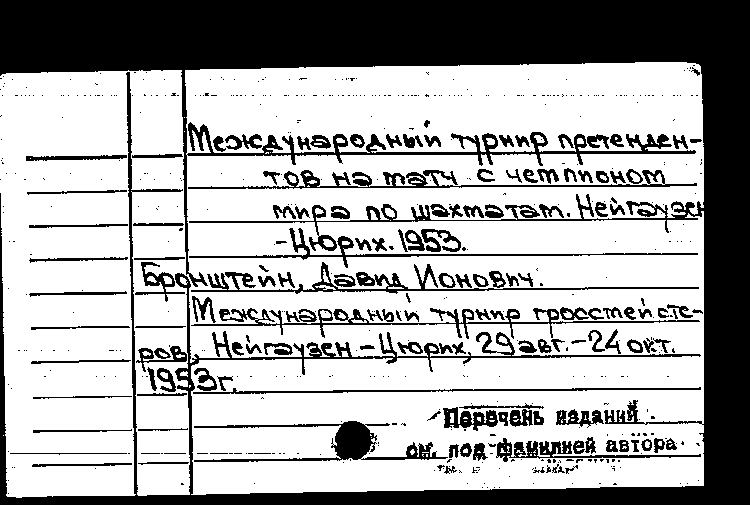 Международный турнир претенден-
тов на матч с чемпионом
мира по шахматам. Нейгаузен
-Цюрих. 1953.
Бронштейн, Давид Ионович.
Международный турнир гроссмейсте-
ров, Нейгаузен-Цюрих, 29 авг.-24 окт.
1953г.
Перечень изданий
см. под фамилией автора